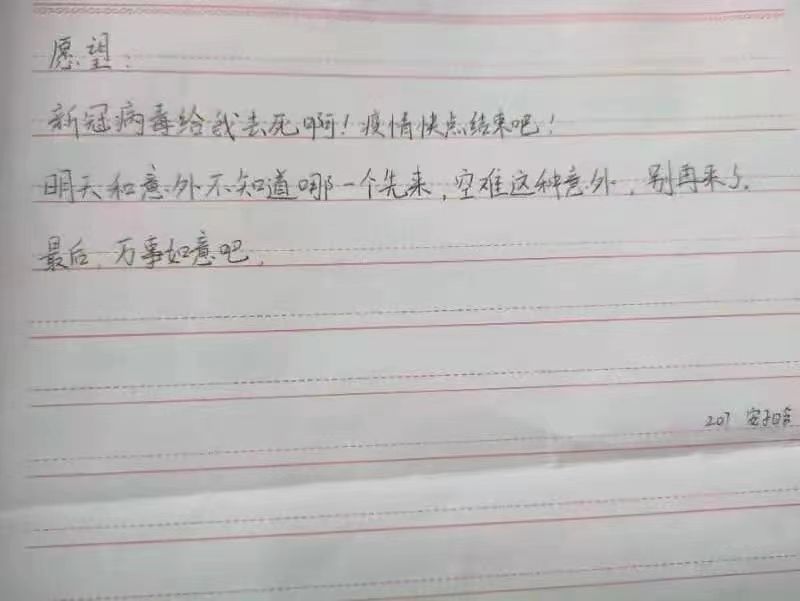 愿望:
新冠病毒给我去死啊！疫情快点结束吧！
明天和意外不知道哪一个先来，空难这种意外，别再来了.
最后，万事如意吧.
207 安子